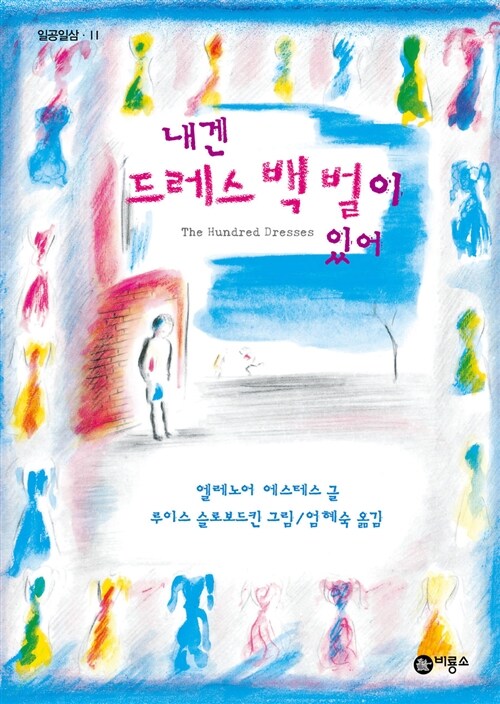 일공일삼·11
내겐
드레스 백 벌이
The Hundred Dresses
있어
엘레노어 에스테스 글
루이스 슬로보드킨 그림/엄혜숙 옮김
비룡소